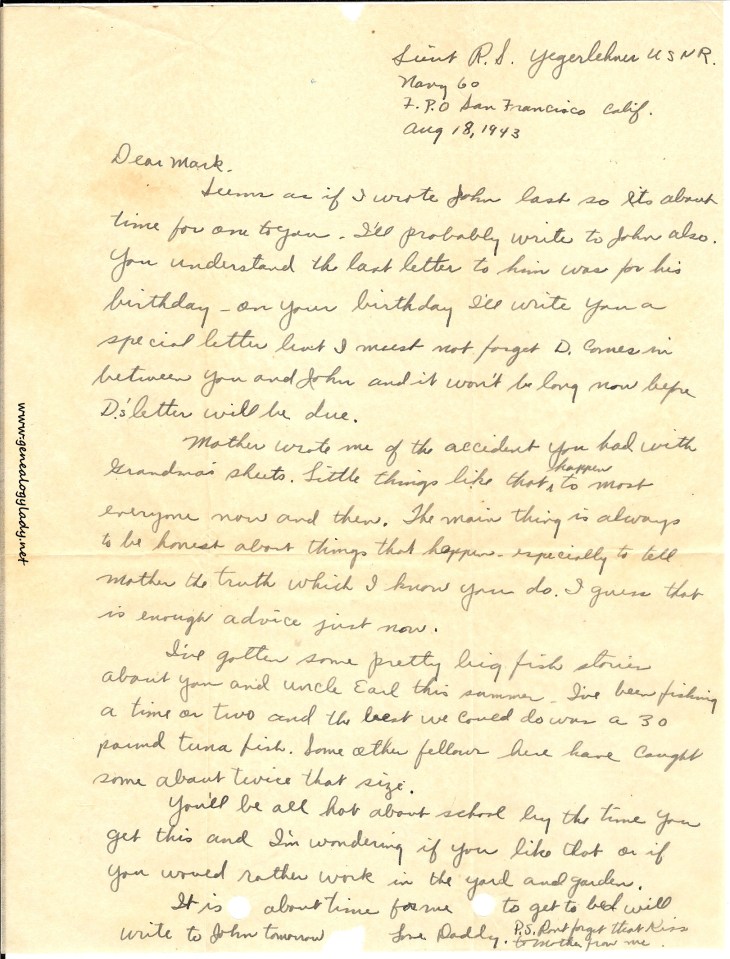 Lieut R. S. Yegerlehner USNR.
Navy 60
F.P.O San Francisco Calif.
Aug 18, 1943
Dear Mark.
Seems as if I wrote John last so its about
time for one to you - I'll probably write to John also.
You understand the last letter to him was for his
birthday - on your birthday I'll write you a
special letter but I must not forget D. Comes in
between you and John and it won't be long now before
D.'s letter will be due.
Mother wrote me of the accident you had with
Grandma's sheets. Little things like that happen to most
everyone now and then. The main thing is always
to be honest about things that happen - especially to tell
mother the truth which I know you do. I guess that
is enough advice just now.
I've gotten some pretty big fish stories
about you and uncle Earl this summer - I've been fishing
a time or two and the best we could do was a 30
pound tuna fish. Some other fellows here have caught
some about twice that size.
You'll be all hot about school by the time you
get this and I'm wondering if you like that or if
you would rather work in the yard and garden.
It is about time for me to get to bed will
write to John tomorrow Love Daddy.
P.S. Dont forget that Kiss
to mother from me.
www.genealogylady.net